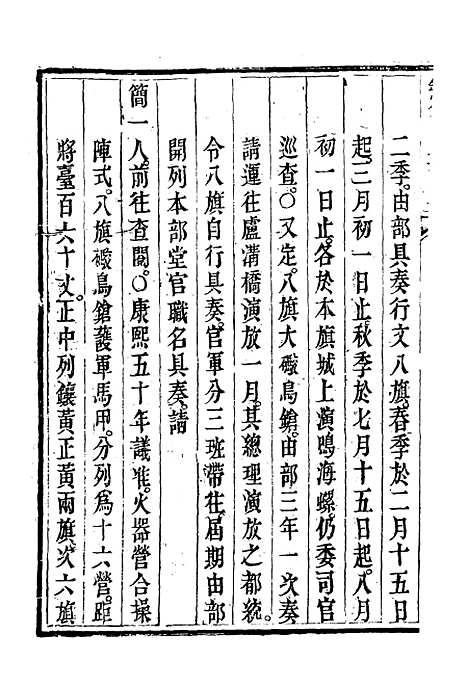 二季。由部具奏行文八旗。春季於二月十五日
起。三月初一日止。秋季於七月十五日起。八月
初一日止。各於本旗城上演鳴海螺。仍委司官
巡查○又定。八旗大礮鳥鎗。由部三年一次奏
請運往盧溝橋演放一月。其總理演放之都統。
令八旗自行具奏。官軍分三班帶往。屆期由部
開列本部堂官職名具奏。請
簡一人。前往查閱。○康熙五十年議准。火器營合操
陣式。八旗礮鳥鎗護軍馬甲。分列為十六營。距
將臺百六十丈。正中列鑲黃正黃兩旗。次六旗